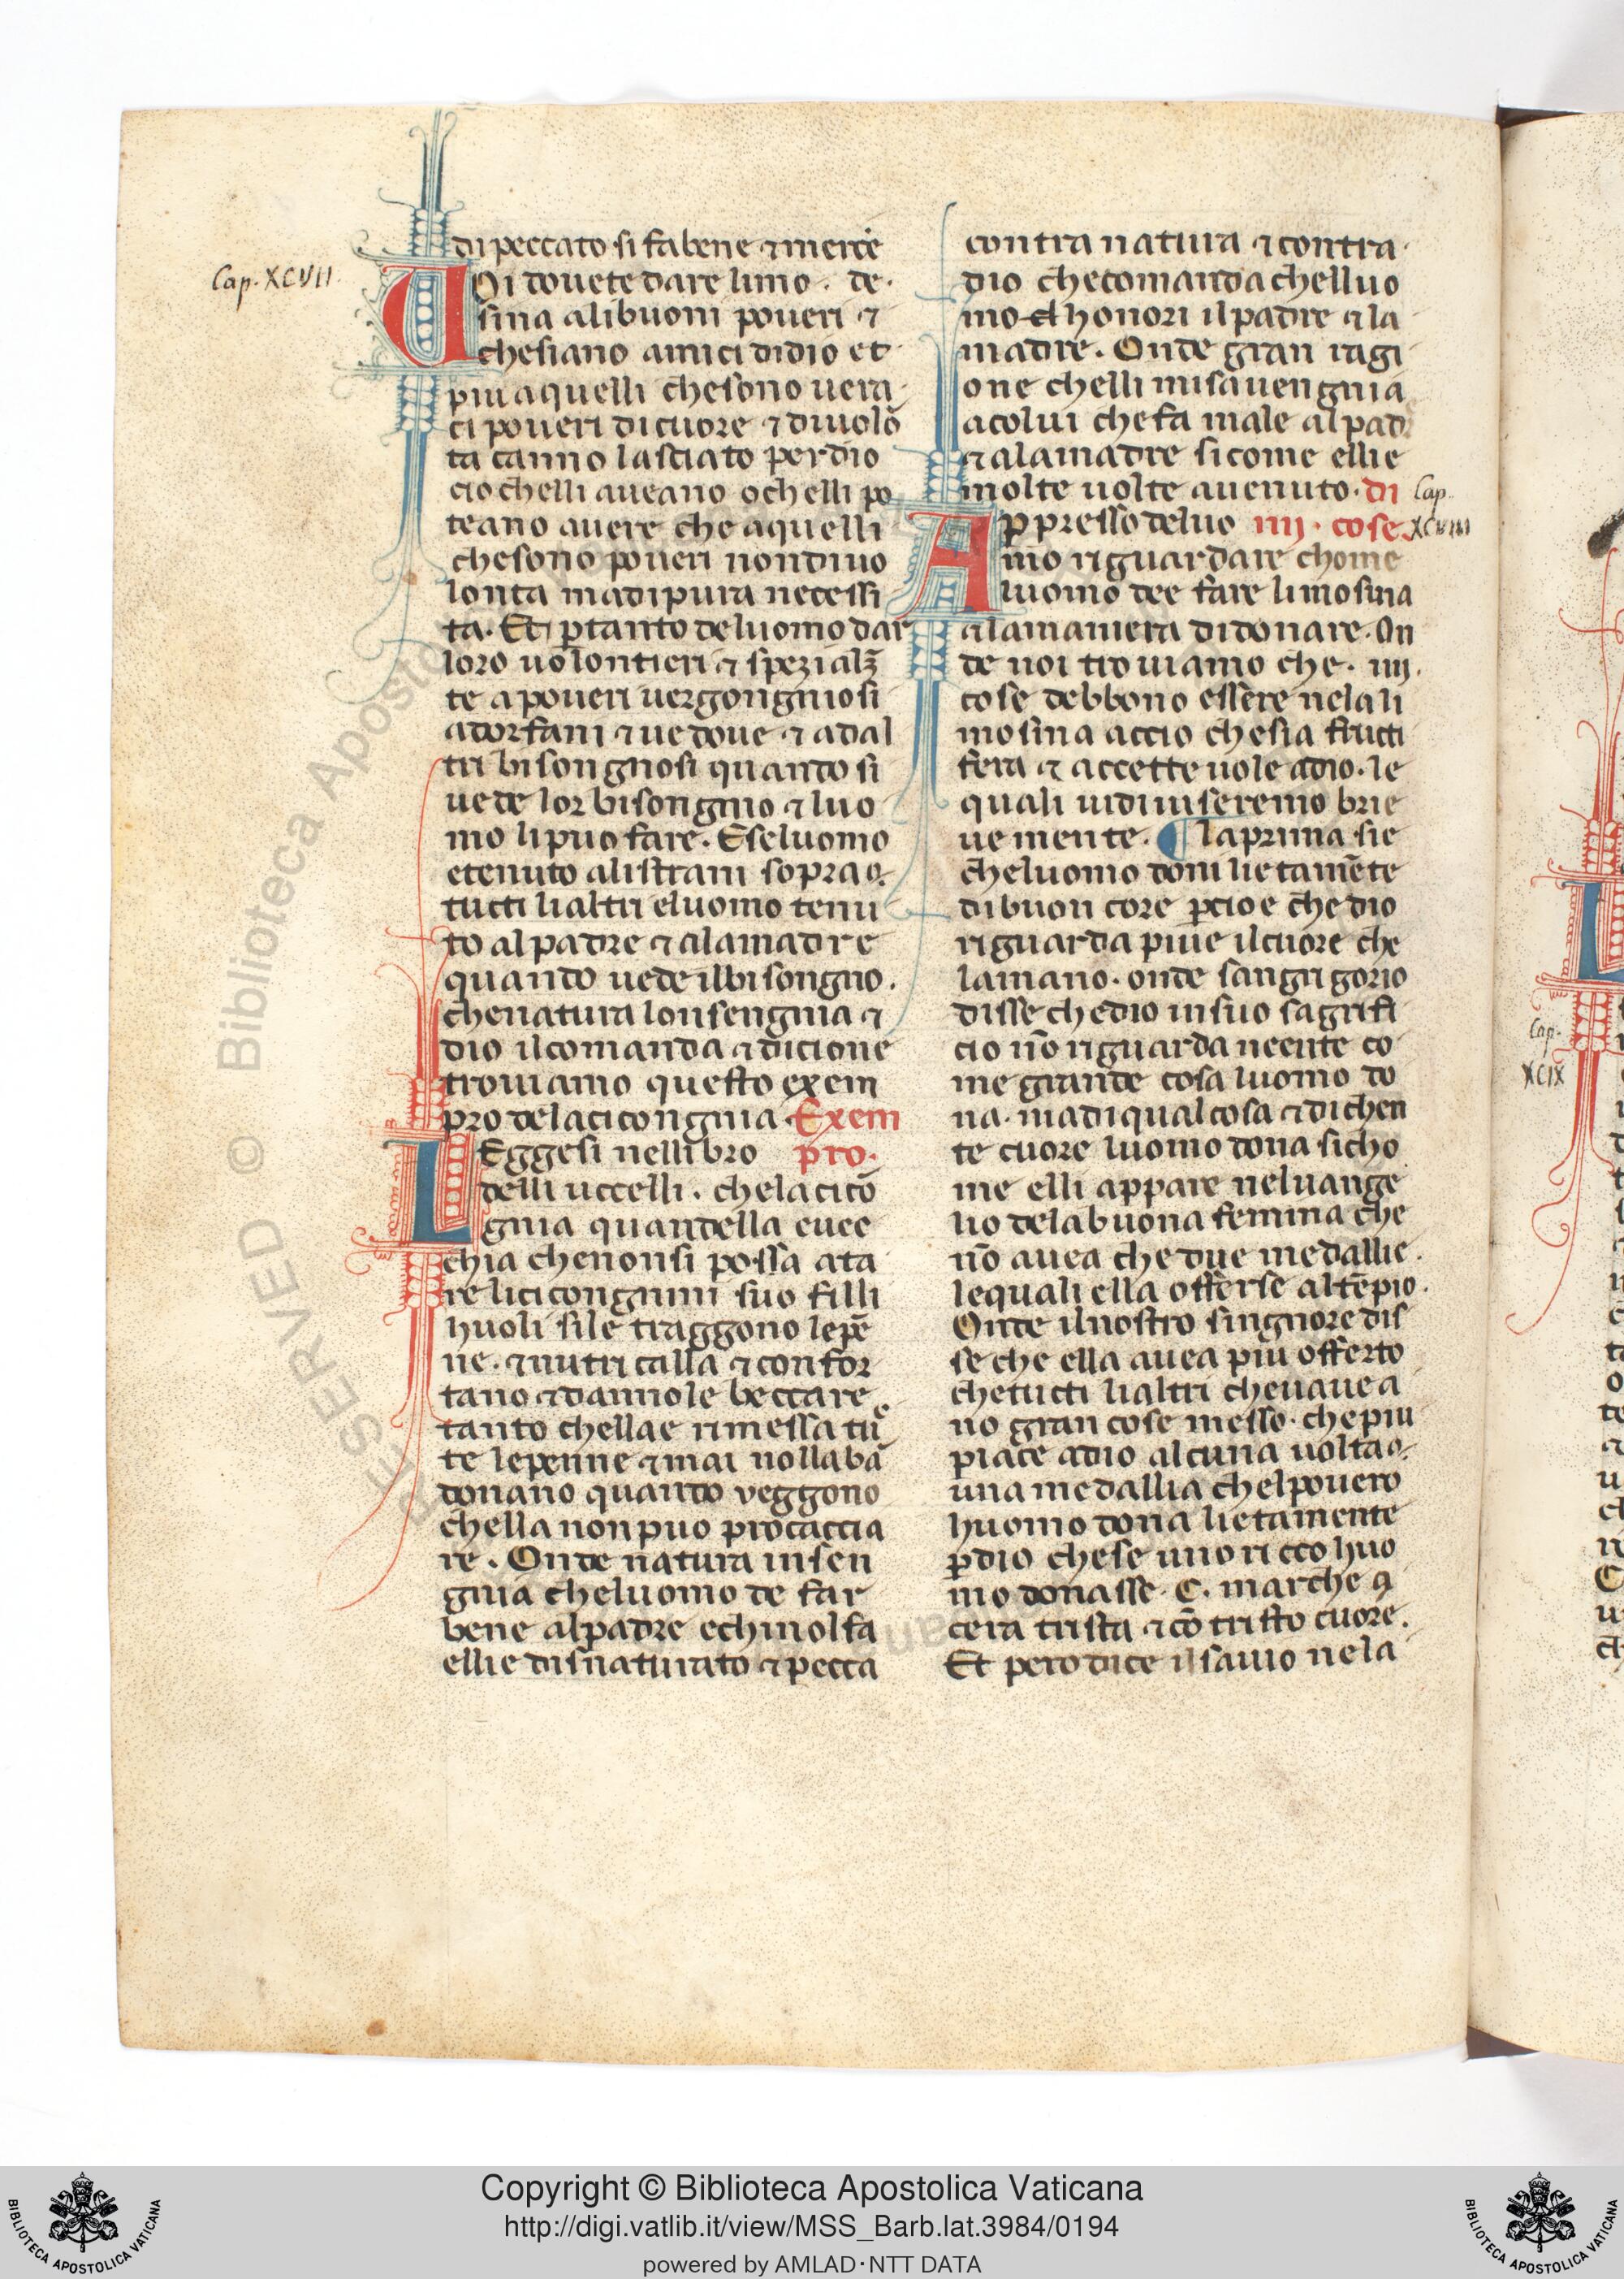 Cap. XCVII.
di peccato si fa bene ⁊ merce
VOi douete dare limo. de.
sina ali buoni poueri ⁊
che siano amici didio et
piu a quelli che sono uera
ci poueri di cuore ⁊ diuolō
ta canno lasciato per dio
cio chelli aueano o chelli po
teano auere che a quelli
che sono poueri non diuo
lonta ma di pura necessi
ta. Et ꝑ tanto de luomo dar
loro uolontieri ⁊ spezialm̄
te a poueri uergongniosi
ad orfani ⁊ uedoue ⁊ ad al
tri bisongnosi quando si
uede lor bisongnio ⁊ luo
mo li puo fare. E se luomo
e tenuto ali strani sopra o.
tucti li altri e luomo tenu
to al padre ⁊ ala madre
quando uede il bisongno.
che natura lonsengnia ⁊
dio il comanda ⁊ dicione
trouiamo questo exem
pro dela cicongnia. Exem
LEggesi nel libro pro.
delli uccelli. che la cicō
gnia quandella e uec
chia che non si possa ata
re li cicongnini suo filli
huoli si le traggono le pē
ne. ⁊ nutricalla ⁊ confor
tano ⁊ dannole beccare
tanto chella e rimessa tu
te le penne ⁊ mai nollabā
donano quando veggono
chella non puo procaccia
re. Onde natura insen
gnia che luomo de far
bene al padre e chi nol fa
elli e disnaturato ⁊ pecca
contra natura ⁊ contra.
dio che comanda chelluo
mo honori il padre ⁊ la
madre. Onde gran ragi
one chelli misauengnia
a colui che fa male al padr
⁊ ala madre si come elli e
molte uolte auenuto. di
Cap.
APpresso de luo iiij. cose
XCVIII
mo riguardare chome
luomo dee fare limosina
⁊ la maniera di donare. On
de noi trouiamo che. iiij.
cose debbono essere nela li
mosina accio che sia fructi
fera ⁊ accetteuole a dio. le
quali uidiuiseremo brie
uemente. ¶ la prima sie
che luomo doni lietamēte
di buon core ꝑcio e che dio
riguarda piue il cuore che
la mano. onde san grigorio
disse che dio in suo sagrifi
cio nō riguarda neente co
me grande cosa luomo do
na. ma di qual cosa ⁊ di chen
te cuore luomo dona si cho
me elli appare nel uange
lio dela buona femina che
nō auea che due medallie.
le quali ella offerse al tēpio.
Onde il nostro singnore dis
se che ella auea piu offerto
che tucti li altri che naue a
no gran cose messo. che piu
piace a dio alcuna uolta o.
una medallia chel pouero
huomo dona lietamente
ꝑ dio che se uno ricco huo
mo donasse. C. marche ꝯ
cera trista ⁊ cō tristo cuore.
Et pero dice il sauio nela
Cap.
XCIX
RESERVED © Biblioteca Aposto
Copyright © Biblioteca Apostolica Vaticana
http://digi.vatlib.it/view/MSS_Barb.lat.3984/0194
powered by AMLAD·NTT DATA
BIBLIOTECA APOSTOLICA VATICANA
BIBLIOTECA APOSTOLICA VATICANA